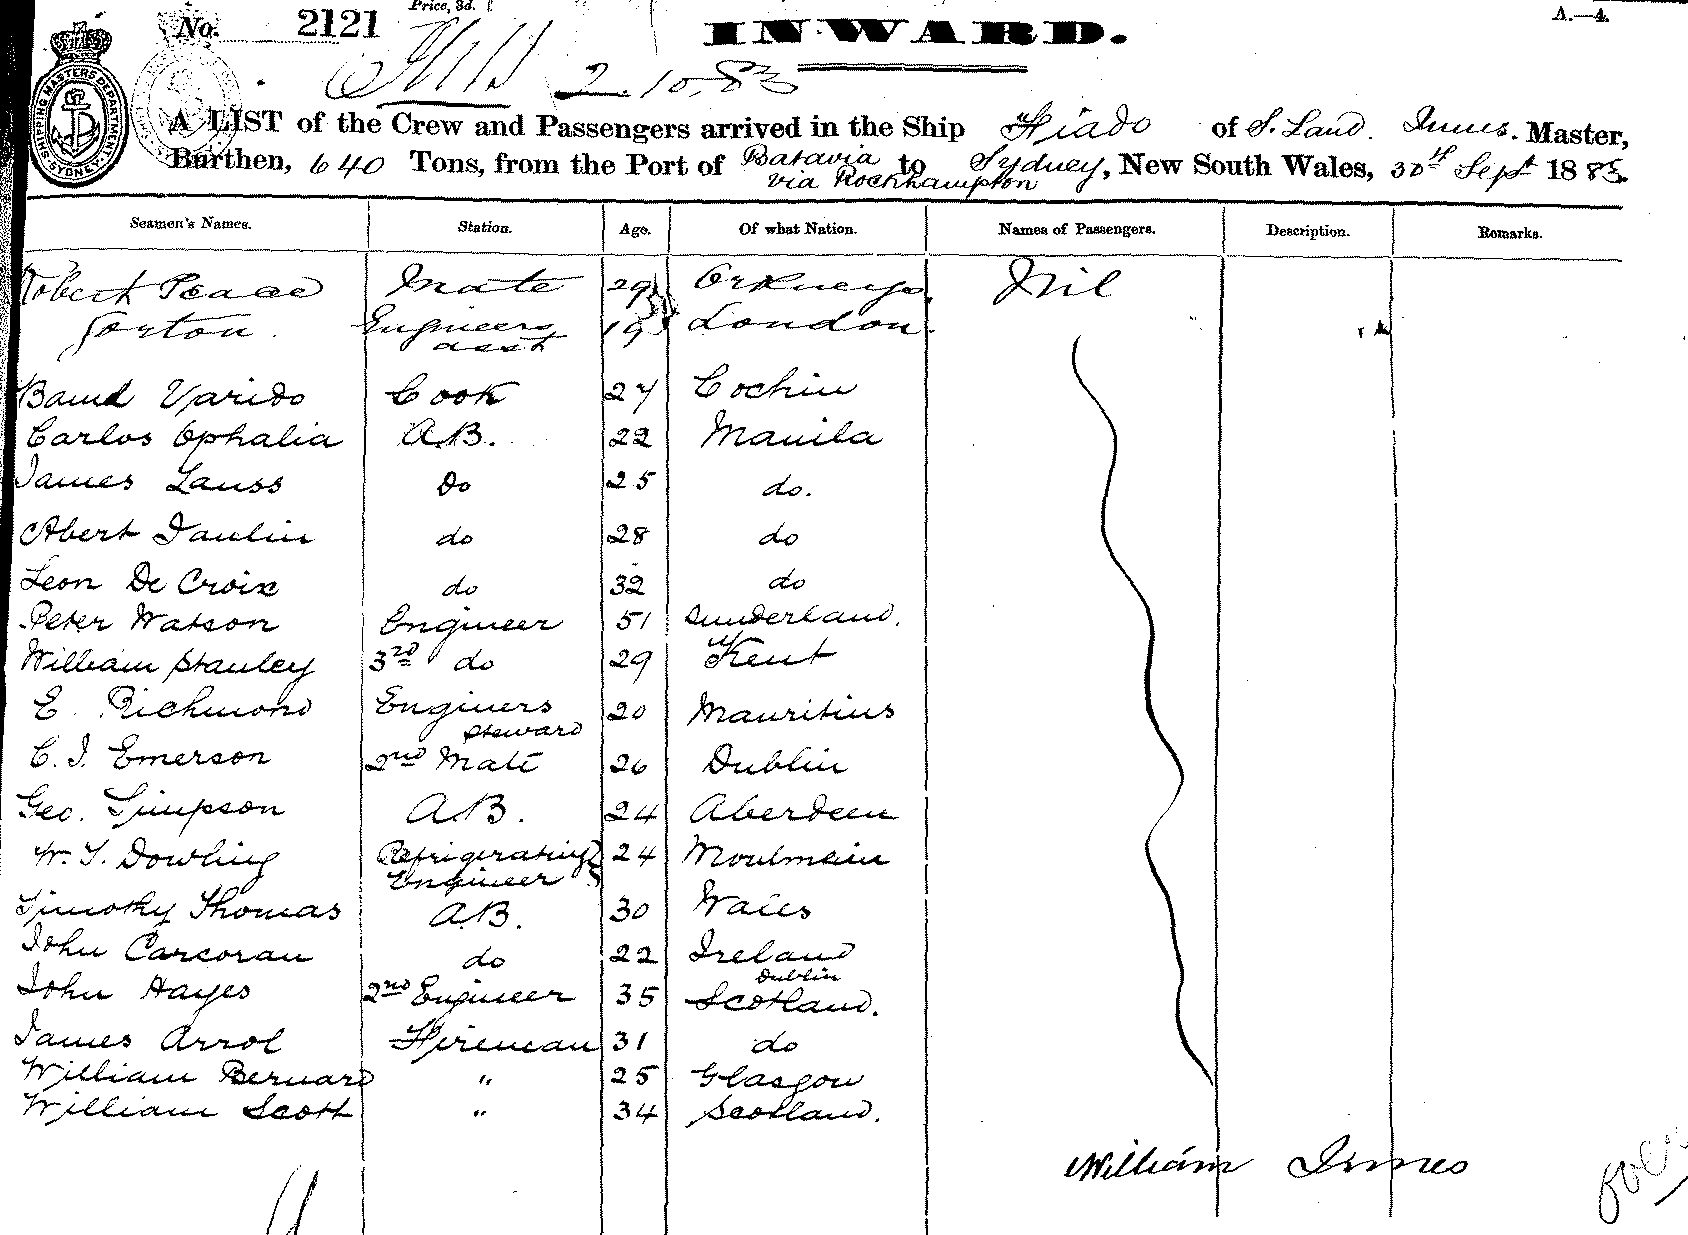 Price, 3d.
No. 2121
INWARD.
A.—4.
2.10.83
SHIPPING MASTERS DEPARTMENT SYDNEY
A LIST of the Crew and Passengers arrived in the Ship Fiado of S. Land. Innes. Master,
Burthen, 640 Tons, from the Port of Batavia to Sydney, New South Wales, 30th Sept 1883.
via Rockhampton
Seamen's Names. Station. Age. Of what Nation. Names of Passengers. Description. Remarks.
Robert Peace Mate 29 Orkneys Nil
Gorton. Engineers 19 London.
asst
Varido Cook 27 Cochin
Carlos Ophalia A.B. 22 Manila
James Lauss Do 25 do.
Abert Paulin do 28 do
Leon De Croix do 32 do
Peter Watson Engineer 51 Sunderland.
William Stanley 3rd do 29 Kent
E. Richmond Enginers 20 Mauritius
Steward
C. J. Emerson 2nd Mate 26 Dublin
Geo. Simpson A.B. 24 Aberdeen
W. T. Dowling Refrigerating 24 Moulmein
Engineer
Timothy Thomas A.B. 30 Wales
John Carcoran do 22 Ireland
Dublin
John Hayes 2nd Engineer 35 Scotland.
James Arrol Fireman 31 do
William Bernard " 25 Glasgow
William Scott " 34 Scotland.
William Innes